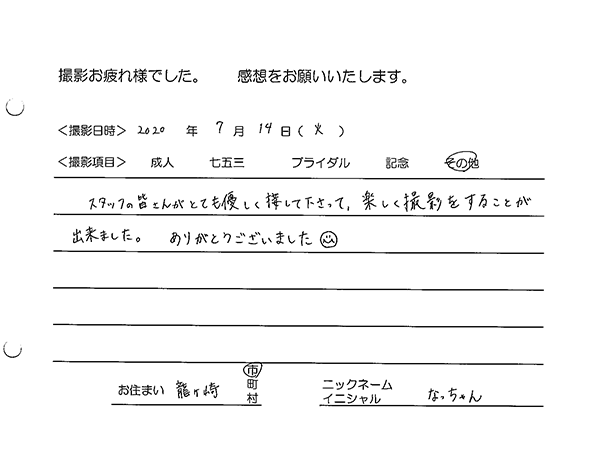 撮影お疲れ様でした。 感想をお願いいたします。
<撮影日時> 2020 年 7 月 14 日 ( 火 )
<撮影項目> 成人 七五三 ブライダル 記念 その他
スタッフの皆さんがとても優しく接して下さって、楽しく撮影をすることが
出来ました。 ありがとうございました
お住まい 龍ヶ崎 市 町 村
ニックネーム イニシャル なっちゃん